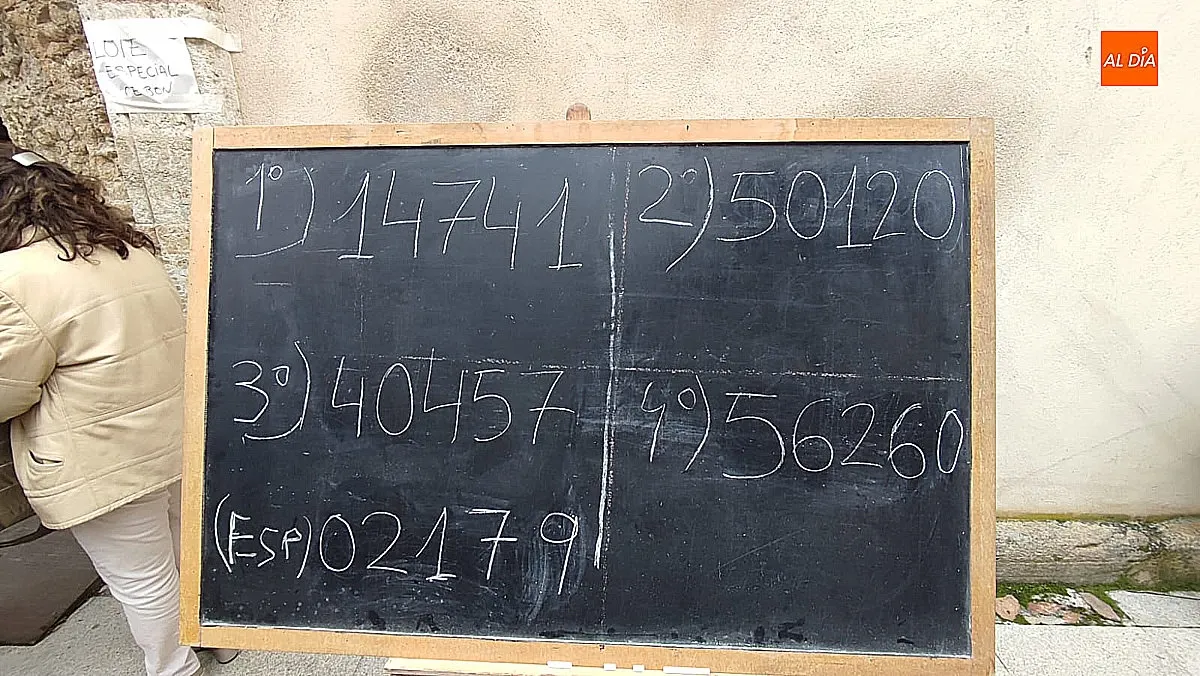 LOTE
ESPECIAL
AL DÍA
1º) 14741
2º) 50120
3º) 40457
4º) 56260
(ESP) 02179